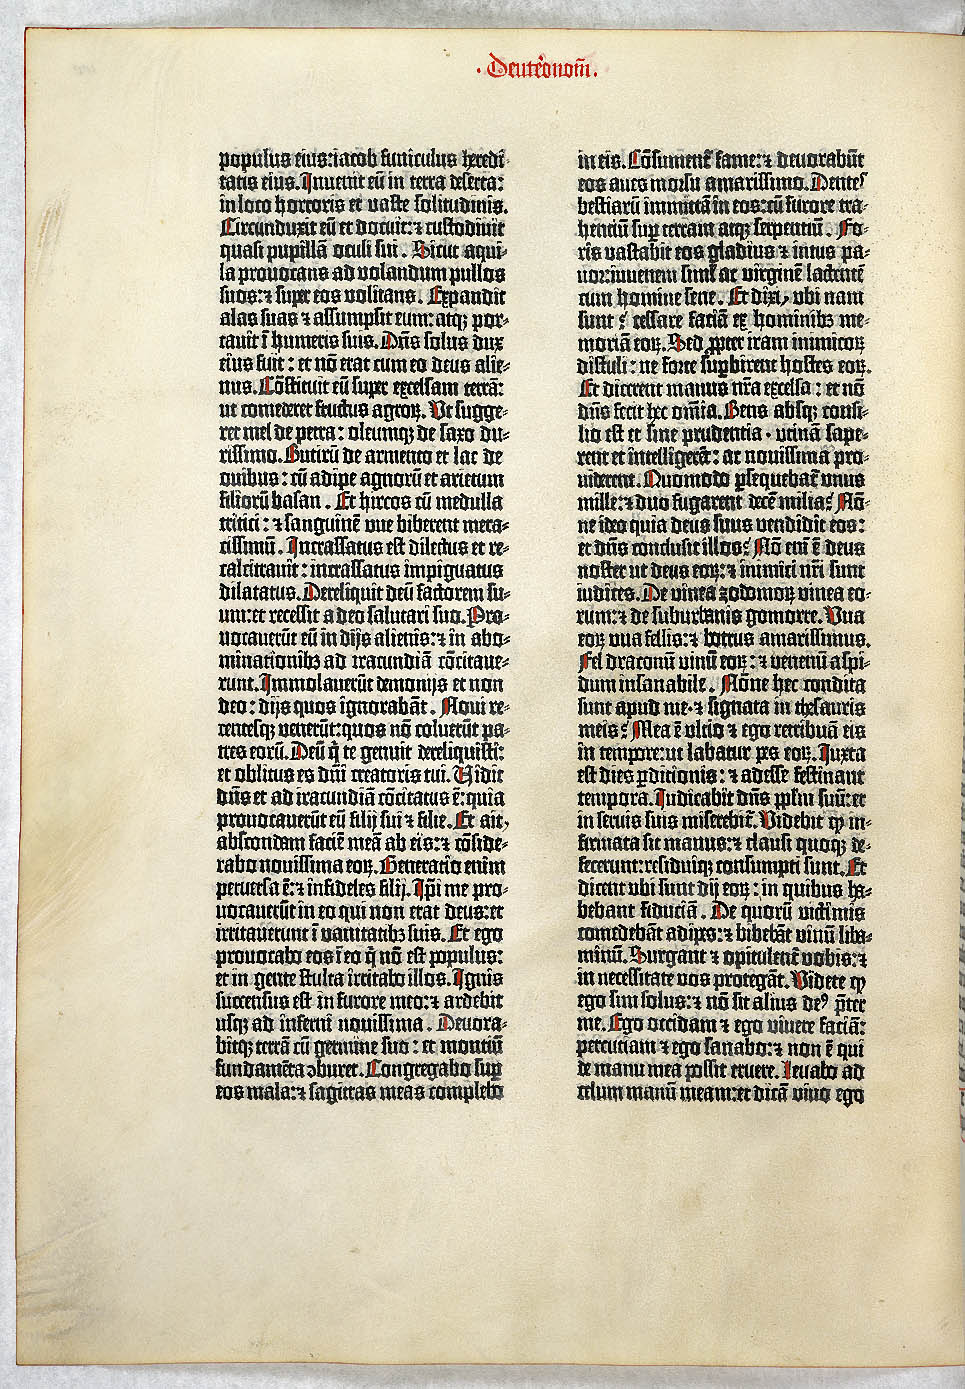 · Deuteronom̄ .
populus eius: iacob funiculus heredi-
tatis eius. Inuenit eū in terra deserta:
in loco horroris et vaste solitudinis.
Circunduxit eū et docuit: ⁊ custodiuit
quasi pupillā oculi sui . Sicut aqui-
la prouocans ad volandum pullos
suos: ⁊ super eos volitans . Expandit
alas suas ⁊ assumpsit eum: atqꝫ por-
tauit ī humeris suis. Dn̄s solus dux
eius fuit : et nō erat cum eo deus alie-
nus. Cōstituit eū super excelsam terrā:
ut comederet fructus agroꝝ. Ut sugge-
ret mel de petra: oleumqꝫ de saxo du-
rissimo. Butirū de armento et lac de
ouibus: cū adipe agnorū et arietum
filiorū basan . Et hircos cū medulla
tritici: ⁊ sanguinē vue biberent mera-
cissimū . Incrassatus est dilectus et re-
calcitrauit: incrassatus impiguatus
dilatatus. Dereliquit deū factorem su-
um: et recessit a deo salutari suo. Pro-
uocauerūt eū in dijs alienis: ⁊ in abo-
minationibꝫ ad iracundiā cōcitaue-
runt. Immolauerūt demonijs et non
deo: dijs quos ignorabāt . Noui re-
centesqꝫ venerūt: quos nō coluerūt pa-
tres eorū. Deū q̄ te genuit dereliquisti:
et oblitus es dn̄i creatoris tui. Vidit
dn̄s et ad iracundiā cōcitatus ē: quia
prouocauerūt eū filij sui ⁊ filie. Et ait,
abscondam faciē meā ab eis: ⁊ cōside-
rabo nouissima eoꝝ. Generatio enim
peruersa ē: ⁊ infideles filij. Ip̄i me pro-
uocauerūt in eo qui non erat deus: et
irritauerunt ī vanitatibꝫ suis. Et ego
prouocabo eos ī eo q̄ nō est populus:
et in gente stulta irritabo illos. Ignis
succensus est in furore meo: ⁊ ardebit
usqꝫ ad inferni nouissima . Deuora-
bitqꝫ terrā cū germine suo : et montiū
fundamēta ↄburet. Congregabo sup̄
eos mala: ⁊ sagittas meas complebo
in eis. Cōsument᷑ fame: ⁊ deuorabūt
eos aues morsu amarissimo. Dentes
bestiarū immittā in eos: cū furore tra-
hentiū sup̄ terram atqꝫ serpentium . Fo-
ris vastabit eos gladius ⁊ intus pa-
uor: iuuenem siml̄ ac virginē lactentē
cum homine sene . Et dixi, vbi nam
sunt ? cessare faciā ex hominibꝫ me-
moriā eoꝝ. Sed ꝓpter iram inimicoꝝ
distuli: ne forte suꝑbirent hostes eoꝝ.
Et dicerent manus nr̄a excelsa : et nō
dn̄s fecit hec om̄ia. Gens absqꝫ consi-
lio est et sine prudentia · utinā sape-
rent et intelligerēt : ac nouissima pro-
uiderent. Quomodo ꝑsequebat᷑ vnus
mille: ⁊ duo fugarent decē milia? Nō-
ne ideo quia deus suus vendidit eos:
et dn̄s conclusit illos? Nō eni ē deus
noster ut deus eoꝝ: ⁊ inimici nr̄i sunt
iudices. De vinea zodomoꝝ vinea eo-
rum: ⁊ de suburbanis gomorre. Vua
eoꝝ vua fellis: ⁊ botrus amarissimus.
Fel draconū vinū eoꝝ: ⁊ venenū aspi-
dum insanabile . Nōne hec condita
sunt apud me · ⁊ signata in thesauris
meis? Mea ē vltio ⁊ ego retribuā eis
in tempore: ut labatur pes eoꝝ. Juxta
est dies ꝑditionis: ⁊ adesse festinant
tempora. Iudicabit dn̄s pp̄lm suū: et
in seruis suis miserebit᷑. Videbit ꝙ in-
firmata sit manus: ⁊ clausi quoqꝫ de-
fecerunt: residuiqꝫ consumpti sunt. Et
dicent vbi sunt dij eoꝝ: in quibus ha-
bebant fiduciā . De quorū victimis
comedebāt adipes: ⁊ bibebāt vinū liba-
minū. Surgant ⁊ opitulent᷑ vobis: ⁊
in necessitate vos protegāt. Videte ꝙ
ego sim solus: ⁊ nō sit alius deꝰ p̄ter
me. Ego occidam ⁊ ego viuere faciā:
percutiam ⁊ ego sanabo: ⁊ non ē qui
de manu mea possit eruere. Leuabo ad
celum manū meam: et dicā viuo ego